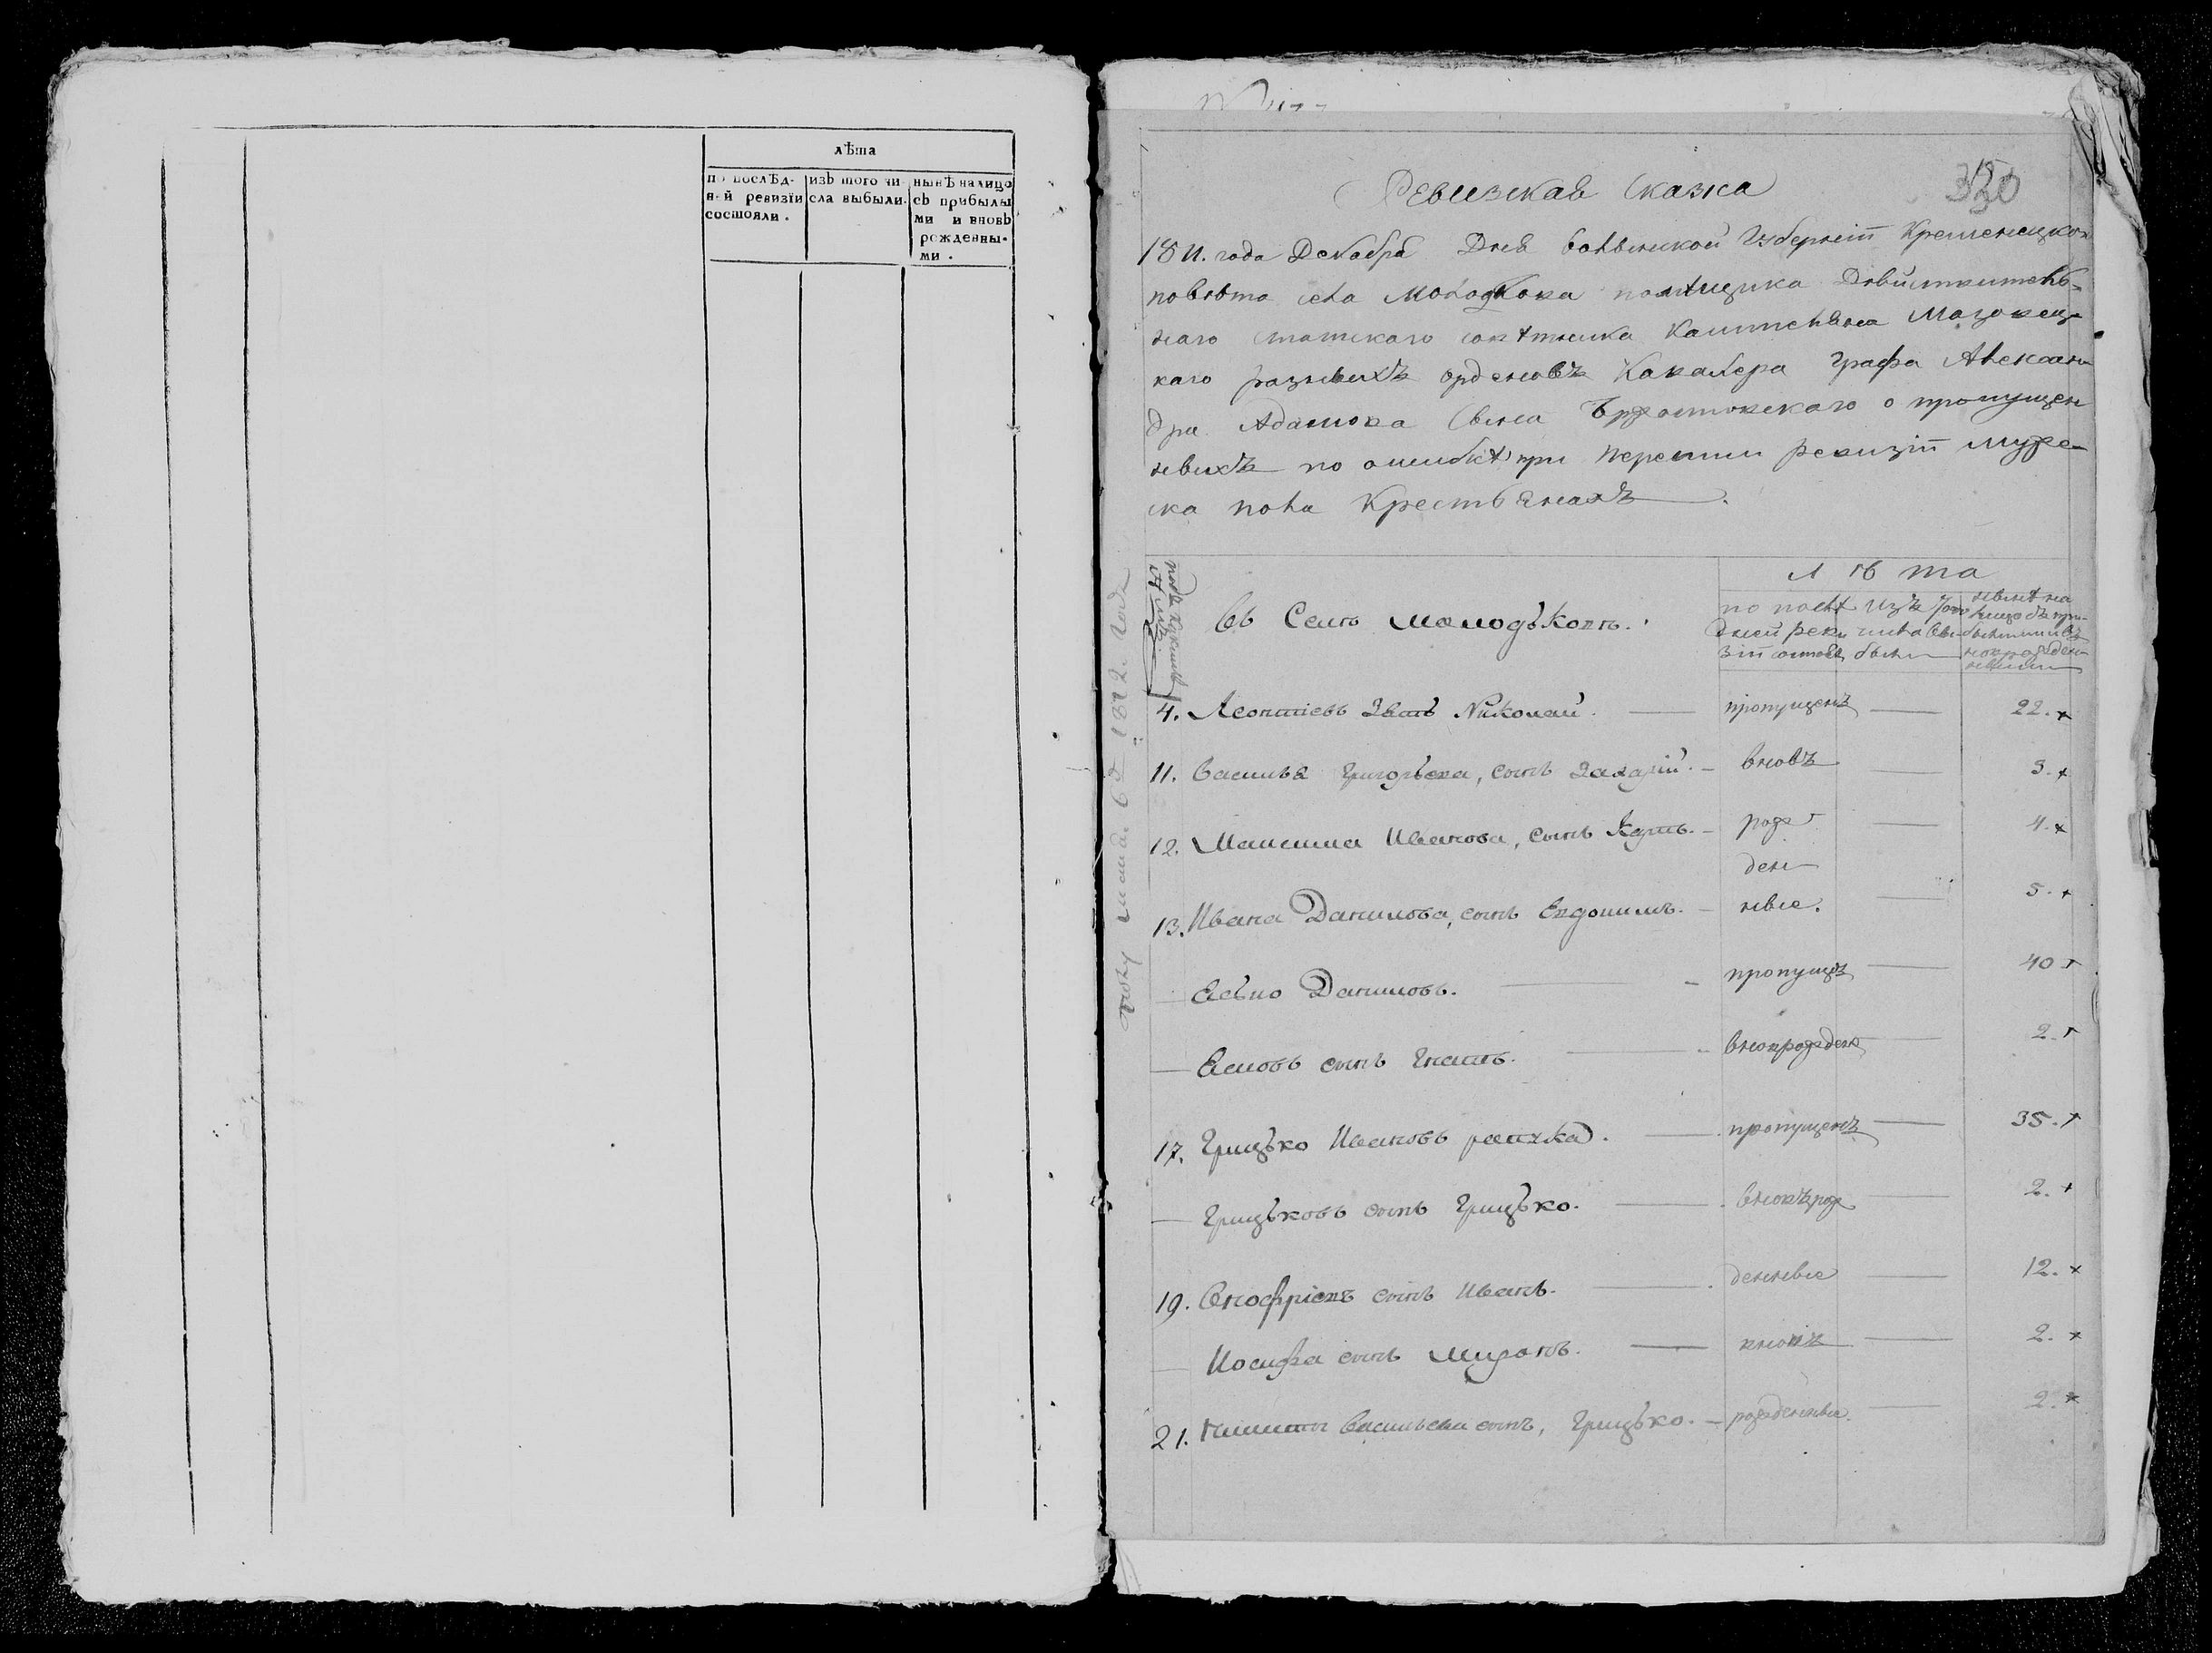 лѣта
по послѣд-
ней ревизїи
состояли.
изъ того чи-
сла выбыли.
нынѣ на лицо
съ прибылы
ми и вновь
рожденны-
ми.
330
Ревизкая Сказка
1811. года Декабра Дня Волынской Губерніи Кременецкого
повѣта села Молодкова помѣщика Дѣйствитель-
наго статскаго совѣтника Каштеляна Мазовец-
каго разныхъ орденовъ Кавалера Графа Алексан-
дра Адамова Сына о пропущен
ныхъ по ошибкѣ при перепи ревизіи муже-
ска пола Крестьянахъ.
Въ Селѣ Молодьковѣ.
Лѣта
по послѣ
дней реви
зіи состоял
изъ того
числа вы-
были
нынѣ на
лицо съ при-
былыми и въ
новорожден-
ными
4. Леонтіевъ Зять Николай. — пропущенъ — 22.
11. Василья Григорьева, сынъ Захарій. — вновъ — 3.
12. Максима Иванова, сынъ — рож — 4.
ден
13. Ивана Данилова, сынъ Евдокимъ. — ные. — 5.
Даниловъ. — пропущ — 40
сынъ Игнатъ. — вноврожден — 2.
17. Грицько Ивановъ — пропущенъ — 35.
— Грицьковъ сынъ Грицько. — вновърож — 2.
19. Онофріевъ сынъ Иванъ. — денные — 12.
— Иосифа сынъ Миронъ. — вновъ — 2.
21. Никиты Васильева сынъ, Грицько. — рожденные. — 2.